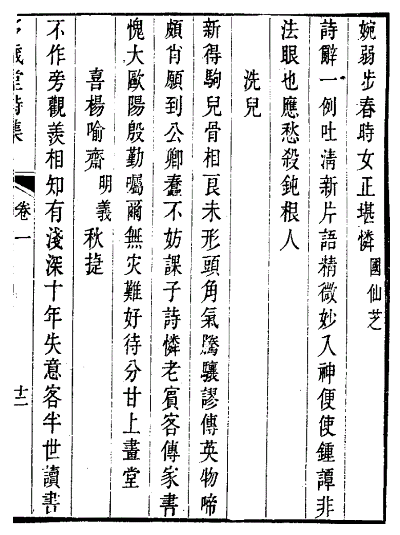 婉弱步春時女正堪憐國仙芝
詩辭一例吐清新片語精微妙入神便使鍾譚非
法眼也應愁殺鈍根人
洗兒
新得駒兒骨相良未形頭角氣騰驤謬傳英物啼
頗肖願到公卿蠢不妨課子詩憐老賓客傳家書
愧大歐陽殷勤囑爾無灾難好待分甘上畫堂
喜楊喻齋明義秋捷
不作旁觀羡相知有淺深十年失意客半世讀書
歲堂詩集
卷一
十二